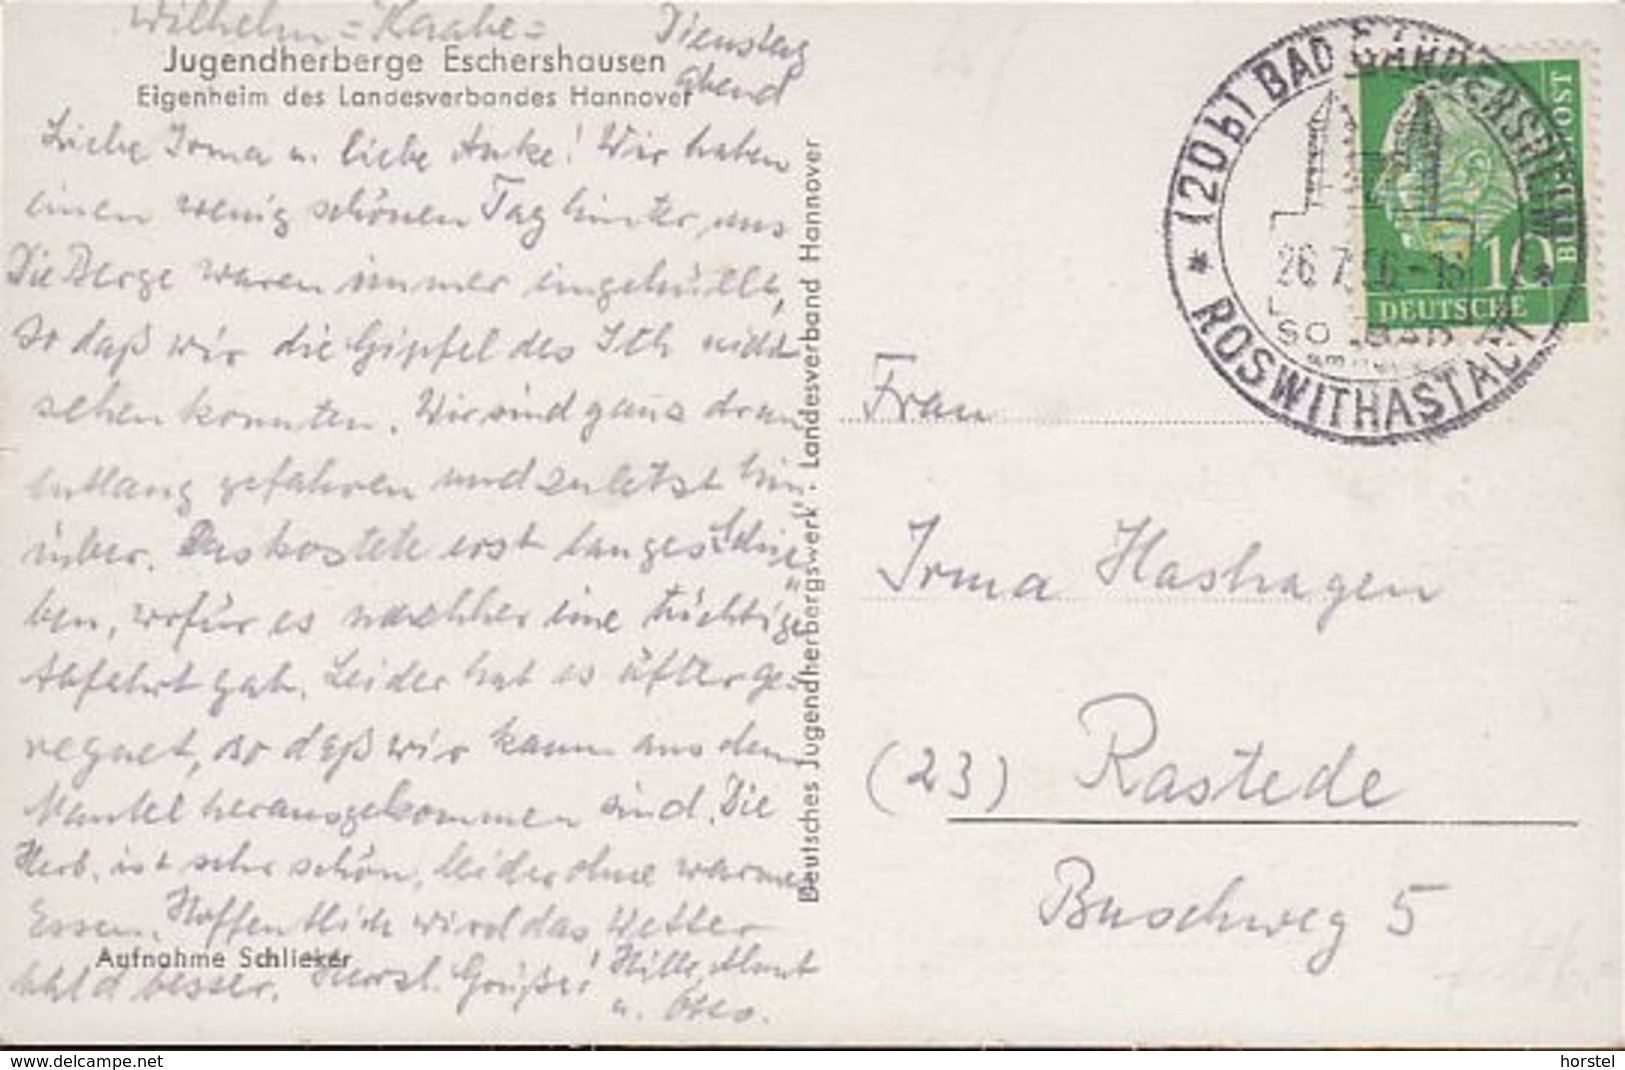 Wilhelm-Raabe-
Dienstag
Abend
Jugendherberge Eschershausen
Eigenheim des Landesverbandes Hannover
Liebe Irma u. liebe Anke! Wir haben
einen wenig schönen Tag hinter uns
Die Berge waren immer eingehüllt,
so daß wir die Gipfel des Ith nicht
sehen konnten. Wir sind ganz dran
entlang gefahren und zuletzt hin-
über. Das kostete erst langes Schie-
ben, wofür es nachher eine tüchtige
Abfahrt gab. Leider hat es öfter ge-
regnet, so daß wir kaum aus dem
Mantel herausgekommen sind. Die
Herb. ist sehr schön, leider ohne warmes
Essen. Hoffentlich wird das Wetter
bald besser. Herzl. Grüße!
u.
Aufnahme Schlieker
Deutsches Jugendherbergswerk · Landesverband Hannover
(20b) BAD GANDERSHEIM
26.7.
ROSWITHASTADT
10
DEUTSCHE
BUNDESPOST
Frau
Irma Hashagen
(23) Rastede
Buschweg 5
www.delcampe.net
horstel